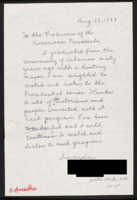 Aug. 23, 1988
To the Producers of the
American Presidents,
I graduated from the
University of Arkansas sixty
years ago with a history
major. I am delighted to
watch and listen to the
Presidential series. Thanks
to all of the historians and
people connected with it.
Each program has been
wonderful and I will
continue to watch and
listen to each program
Sincerely,
Little Rock, AR